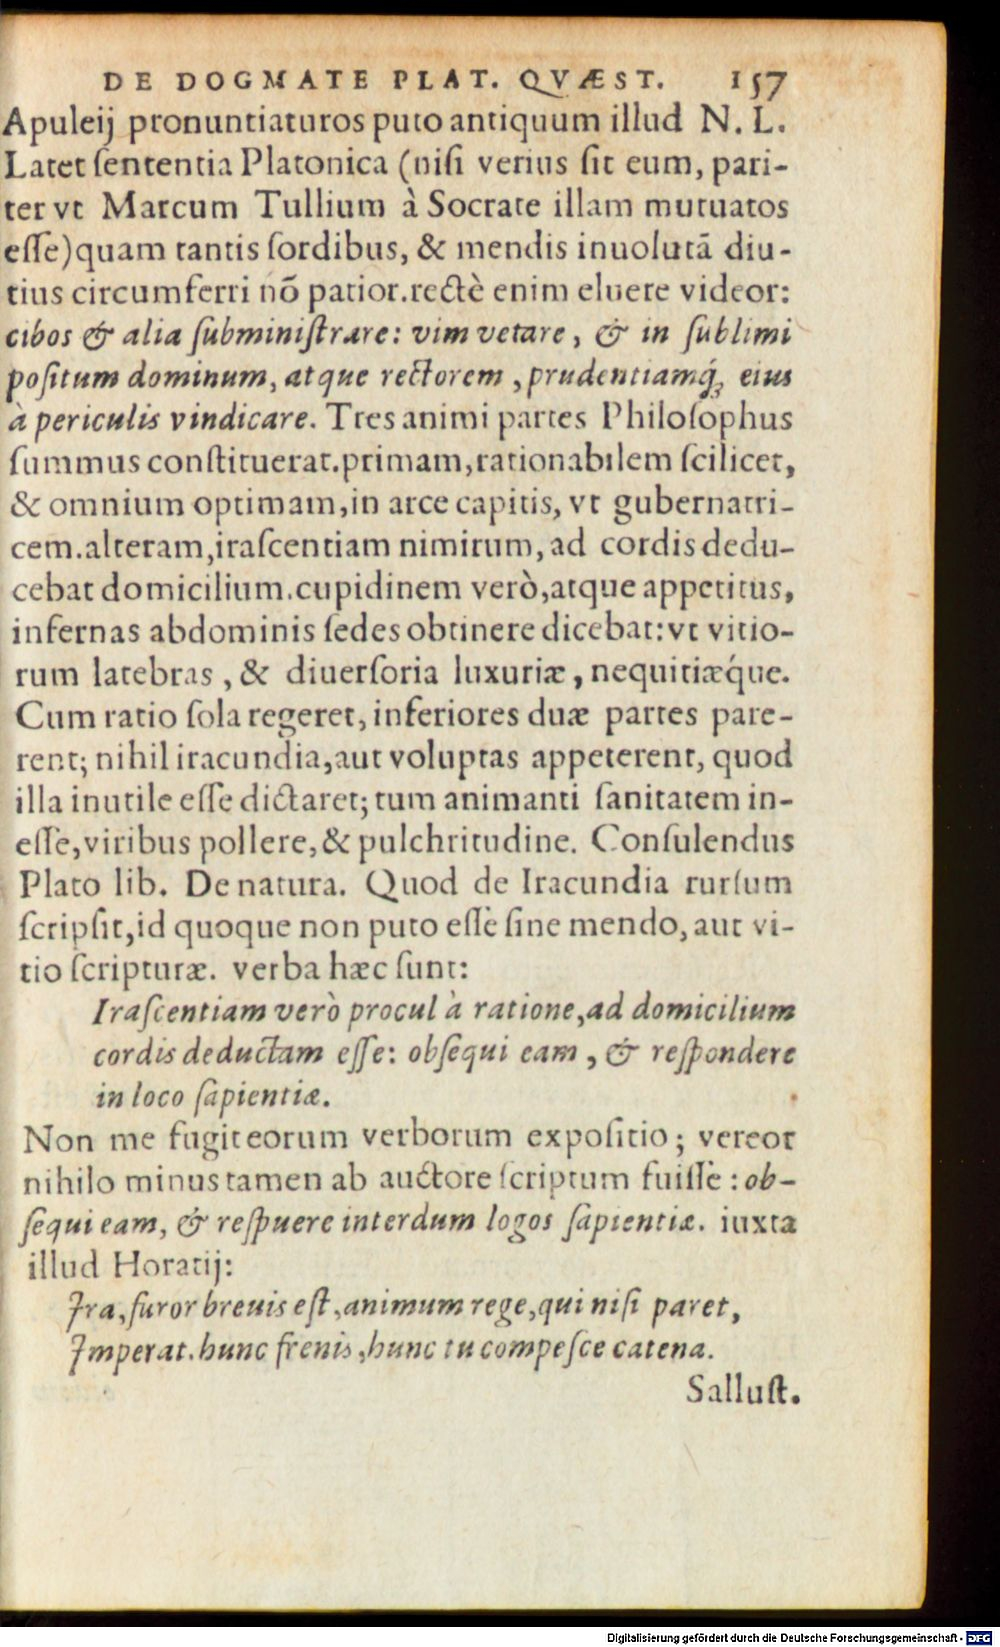 DE DOGMATE PLAT. QVÆST. 157
Apuleij pronuntiaturos puto antiquum illud N. L.
Latet ſententia Platonica (niſi verius ſit eum, pari-
ter vt Marcum Tullium à Socrate illam mutuatos
eſſe)quam tantis ſordibus, & mendis inuolutā diu-
tius circumferri nō patior.rectè enim eluere videor:
cibos & alia ſubminiſtrare: vim vetare, & in ſublimi
poſitum dominum, atque rectorem, prudentiamq́; eius
à periculis vindicare. Tres animi partes Philoſophus
ſummus conſtituerat.primam,rationabilem ſcilicet,
& omnium optimam,in arce capitis, vt gubernatri-
cem.alteram,iraſcentiam nimirum, ad cordis dedu-
cebat domicilium.cupidinem verò,atque appetitus,
infernas abdominis ſedes obtinere dicebat:vt vitio-
rum latebras, & diuerſoria luxuriæ, nequitiæq́ue.
Cum ratio ſola regeret, inferiores duæ partes pare-
rent; nihil iracundia,aut voluptas appeterent, quod
illa inutile eſſe dictaret; tum animanti ſanitatem in-
eſſe,viribus pollere,& pulchritudine. Conſulendus
Plato lib. De natura. Quod de Iracundia rurſum
ſcripſit,id quoque non puto eſſe ſine mendo, aut vi-
tio ſcripturæ. verba hæc ſunt:
Iraſcentiam verò procul à ratione,ad domicilium
cordis deductam eſſe: obſequi eam, & reſpondere
in loco ſapientiæ.
Non me fugit eorum verborum expoſitio; vereor
nihilo minus tamen ab auctore ſcriptum fuiſſe: ob-
ſequi eam, & reſpuere interdum logos ſapientiæ. iuxta
illud Horatij:
Ira,furor breuis eſt,animum rege,qui niſi paret,
Imperat.hunc frenis,hunc tu compeſce catena.
Salluſt.
Digitalisierung gefördert durch die Deutsche Forschungsgemeinschaft - DFG